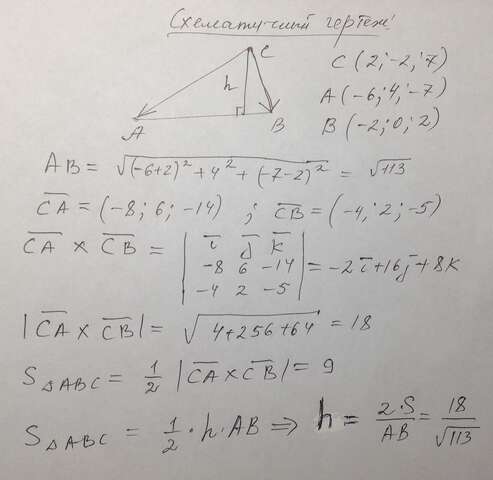 Схематичный чертеж!
C (2; -2; 7)
A (-6; 4; -7)
B (-2; 0; 2)
C
h
A
B
AB = √((-6+2)² + 4² + (-7-2)²) = √113
CA = (-8; 6; -14) ; CB = (-4; 2; -5)
CA × CB = | i j k |
| -8 6 -14 | = -2i + 16j + 8k
| -4 2 -5 |
|CA × CB| = √(4+256+64) = 18
S△ABC = 1/2 |CA × CB| = 9
S△ABC = 1/2 · h · AB ⇒ h = 2·S/AB = 18/√113